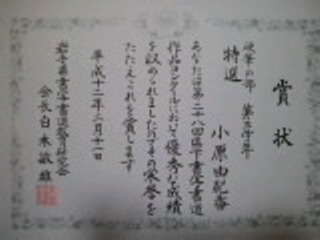 賞状
硬筆の部 第五学年
特選
小原由紀香
あなたは第二十八回県下書写書道
作品コンクールにおいて優秀な成績
を収められましたのでその栄誉を
たたえこれを賞します
平成十二年二月十二日
岩手県書写書道教育研究会
会長 白木敏雄